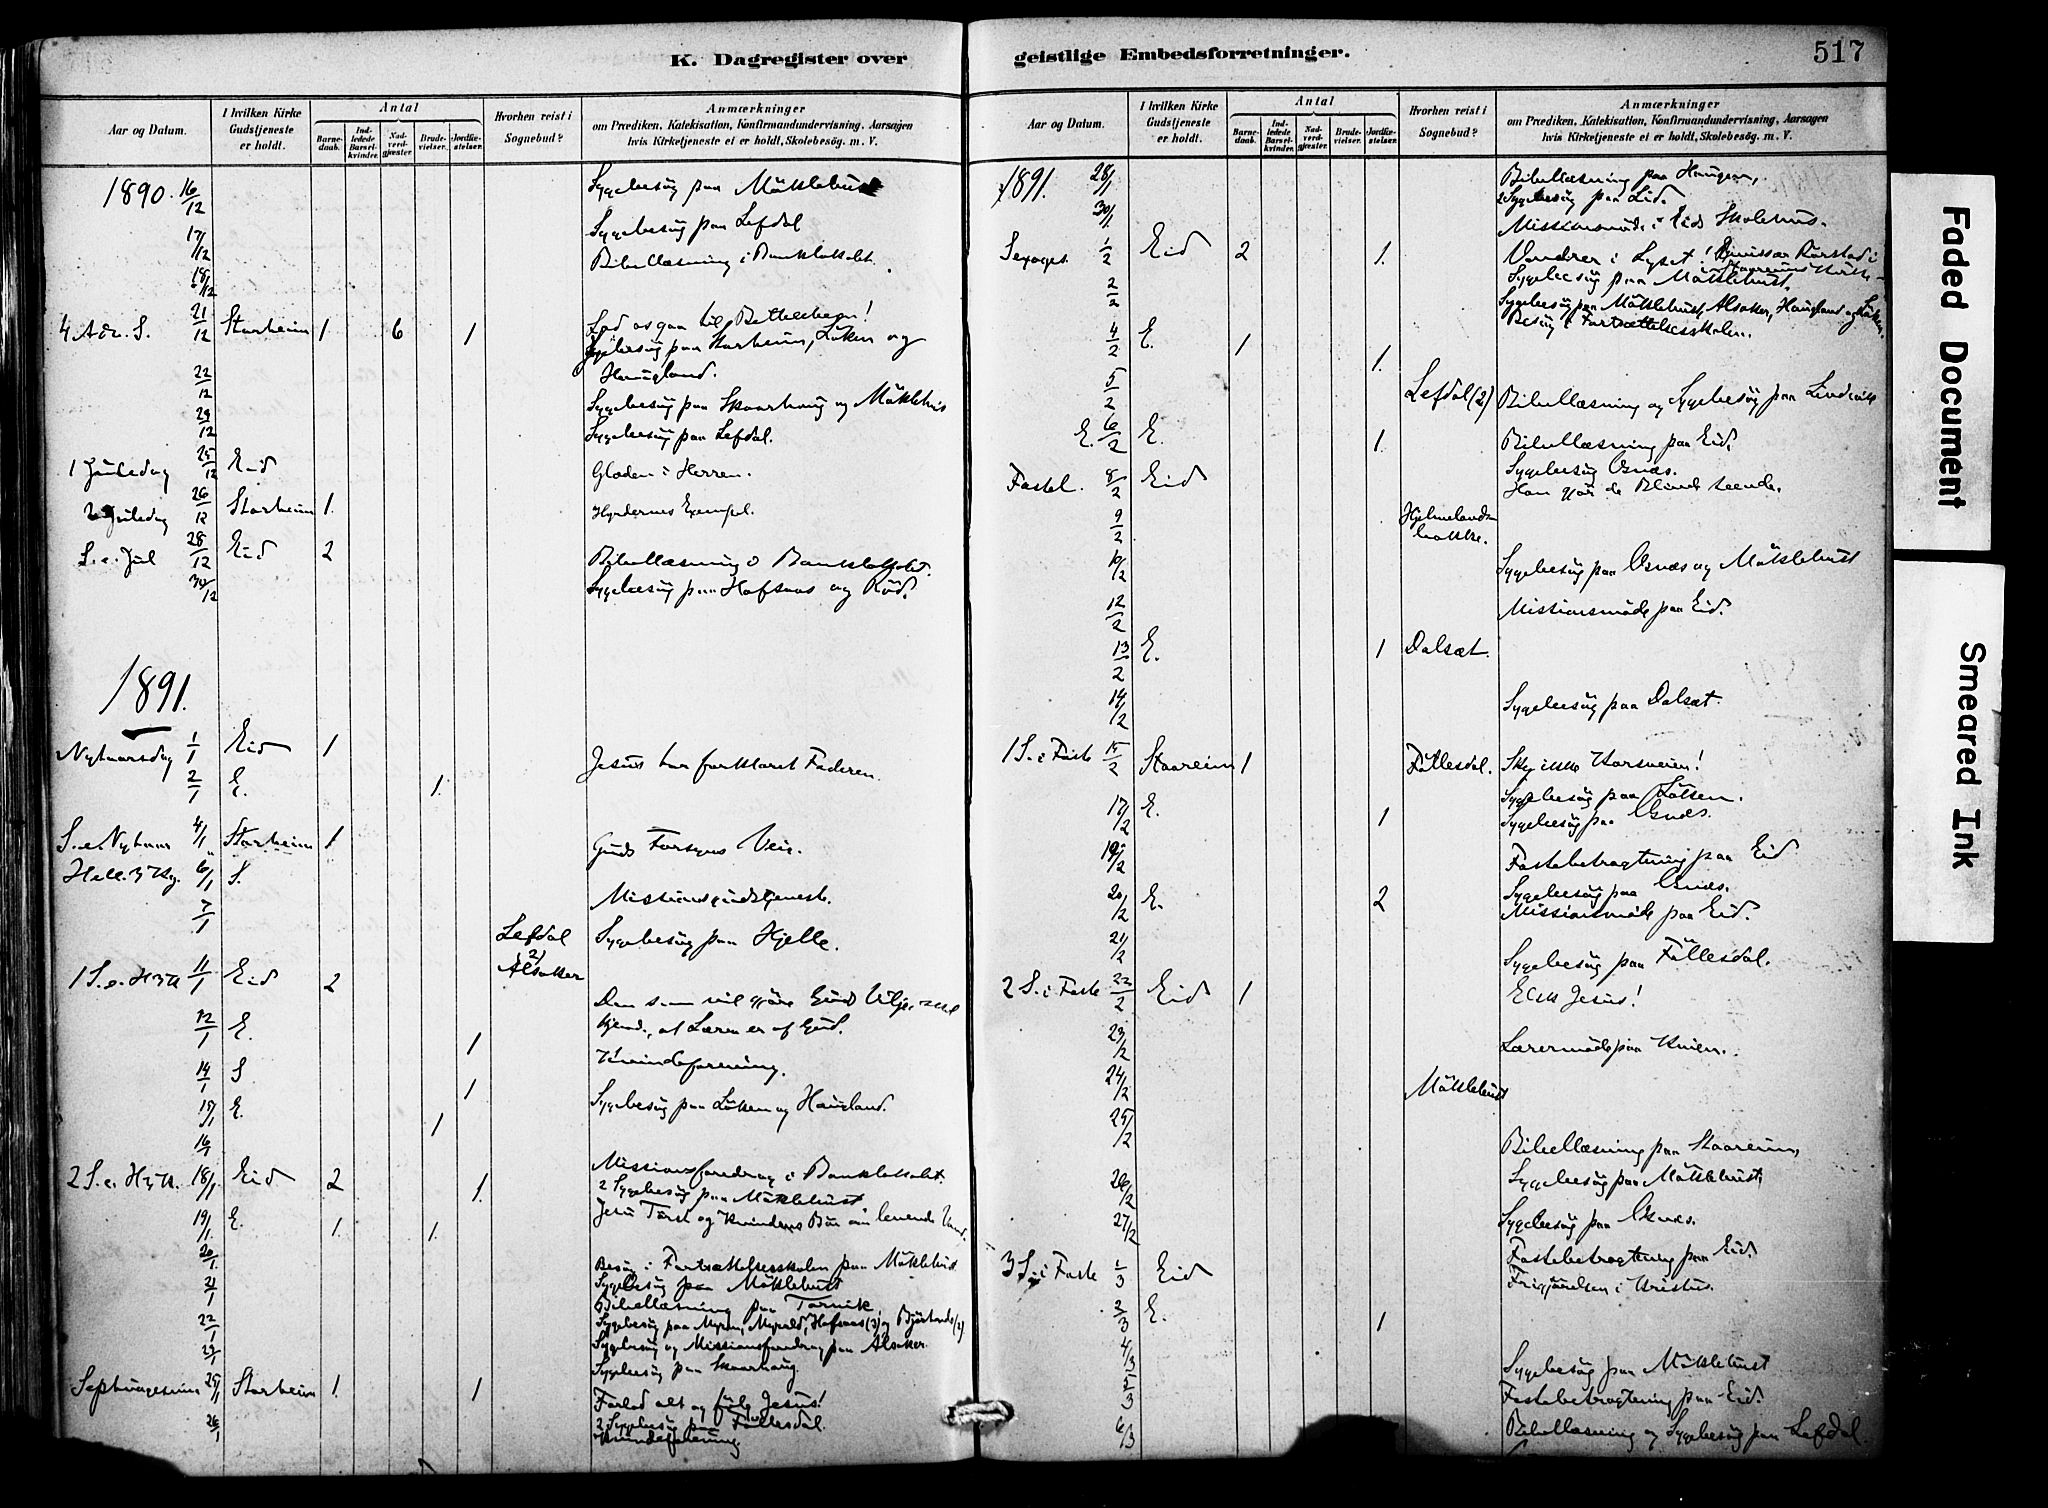 K. Dagregister over geistlige Embedsforretninger.
517
Aar og Datum.
I hvilken Kirke Gudstjeneste er holdt.
Antal
Barnedaab.
Indledede Barselkvinder.
Nadverdgjæster.
Brudevielser.
Jordfæstelser.
Hvorhen reist i Sognebud?
Anmærkninger
om Prædiken, Katekisation, Konfirmandundervisning, Aarsagen
hvis Kirketjeneste ei er holdt, Skolebesög. m. V.
1890. 16/12 Sygebesøg paa Möklebust
17/12 Sygebesøg paa Lefdal
18/12 Bibellæsning i Banklokalet.
4 Adv. S. 21/12 Starheim 1 6 1 Lad os gaa til Bethlehem!
Sygebesøg paa Starheim, Löken og
22/12 Haugland.
Sygebesøg paa Skaarhaug og Möklebust
Sygebesøg paa Lefdal.
1 Juledag 25/12 Eid Glæden i Herren.
2 Juledag 26/12 Starheim 1. Hyrdernes Exempel.
S. e. Jul 28/12 Eid 2
30/12 Bibellæsning i Banklokalet.
Sygebesøg paa Hafsaas og Röd.
1891.
Nytaarsdag 1/1 Eid 1 Jesus har forklaret Faderen.
2/1 E. 1.
S. e. Nytaar 4/1 Starheim 1. Guds Forsyns Veie.
Hell. 3 Kg. 6/1 S. Missionsgudstjeneste.
7/1 Lefdal Sygebesøg paa Hjelle.
2) Alsaker
1 S. e. H3K 11/1 Eid 2 Den som vil gjöre Guds Vilje, skal
kjende, at Læren er af Gud.
12/1 E. 1 Kvindeforening.
14/1 S 1 Sygebesøg paa Löken og Haugland.
15/1 E. 1
16/1 Missionsforedrag i Banklokalet.
2 S. e. H3K. 18/1 Eid 2 1. 2 Sygebesøg paa Möklebust
Jesu Törst og Kvindens Bön om levende Vand.
19/1 E. 1. 1.
20/1 Besøg i Fortsættelsesskolen paa Möklebust
21/1 Sygebesøg paa Möklebust
Bibellæsning paa Torvik.
22/1 Sygebesøg paa Myren, Myrold, Hafsaas (3) og Bjørlund (2)
23/1 Sygebesøg og Missionsforedrag paa Alsaker.
Sygebesøg paa Skaarhaug
Septuagesima 25/1 Starheim 1. 1 Forlad alt og følg Jesus!
26/1 2 Sygebesøg paa Föllesdal.
Kvindeforening
Aar og Datum.
I hvilken Kirke Gudstjeneste er holdt.
Antal
Barnedaab.
Indledede Barselkvinder.
Nadverdgjæster.
Brudevielser.
Jordfæstelser.
Hvorhen reist i Sognebud?
Anmærkninger
om Prædiken, Katekisation, Konfirmandundervisning, Aarsagen
hvis Kirketjeneste ei er holdt, Skolebesög. m. V.
1891. 28/1 Bibellæsning paa Haugen,
2 Sygebesøg paa Lid.
30/1. Missionsmöde i Eids Skolehus.
Sexages. 1/2 Eid 2 1. Vandrer i Lyset!
2/2 Sygebesøg paa Möklebust.
Sygebesøg paa Möklebust, Alsaker, Haugland og Löken.
4/2 E. 1 1. Besøg i Fortsættelsesskolen.
5/2 Lefdal (2) Bibellæsning og Sygebesøg paa Lindvik
E. 6/2 E. 1. Bibellæsning paa Eid.
Sygebesøg Osnes.
Fastel. 8/2 Eid Han gjör de Blinde seende.
9/2 Hjelmelandsbakke.
10/2 Sygebesøg paa Osnes og Möklebust
12/2 Missionsmöde paa Eid.
13/2 E. 1 Dalsæt.
14/2 Sygebesøg paa Dalsæt.
1 S. i Faste 15/2 Staareim 1 Föllesdal. Sky ikke Korsveien!
Sygebesøg paa Löken.
17/2 E. 1 Sygebesøg paa Osnes.
19/2 Fastebetragtning paa Eid
20/2 E. 2 Sygebesøg paa Osnes.
Missionsmöde paa Eid.
21/2 Sygebesøg paa Föllesdal.
2 S. i Faste 22/2 Eid 1 Elsk Jesus!
23/2 Lærermöde paa Kvien.
24/2 Möklebust
25/2 Bibellæsning paa Staareim,
26/2 Sygebesøg paa Möklebust,
27/2 Sygebesøg paa Osnes.
Fastebetragtning paa Eid.
3 S. i Faste 1/3 Eid Frigjörelsen i Kristus.
2/3 E. 1
4/3 Sygebesøg paa Möklebust
5/3 Fastebetragtning paa Eid.
6/3 Bibellæsning og Sygebesøg paa Lefdal.
Faded Document
Smeared Ink